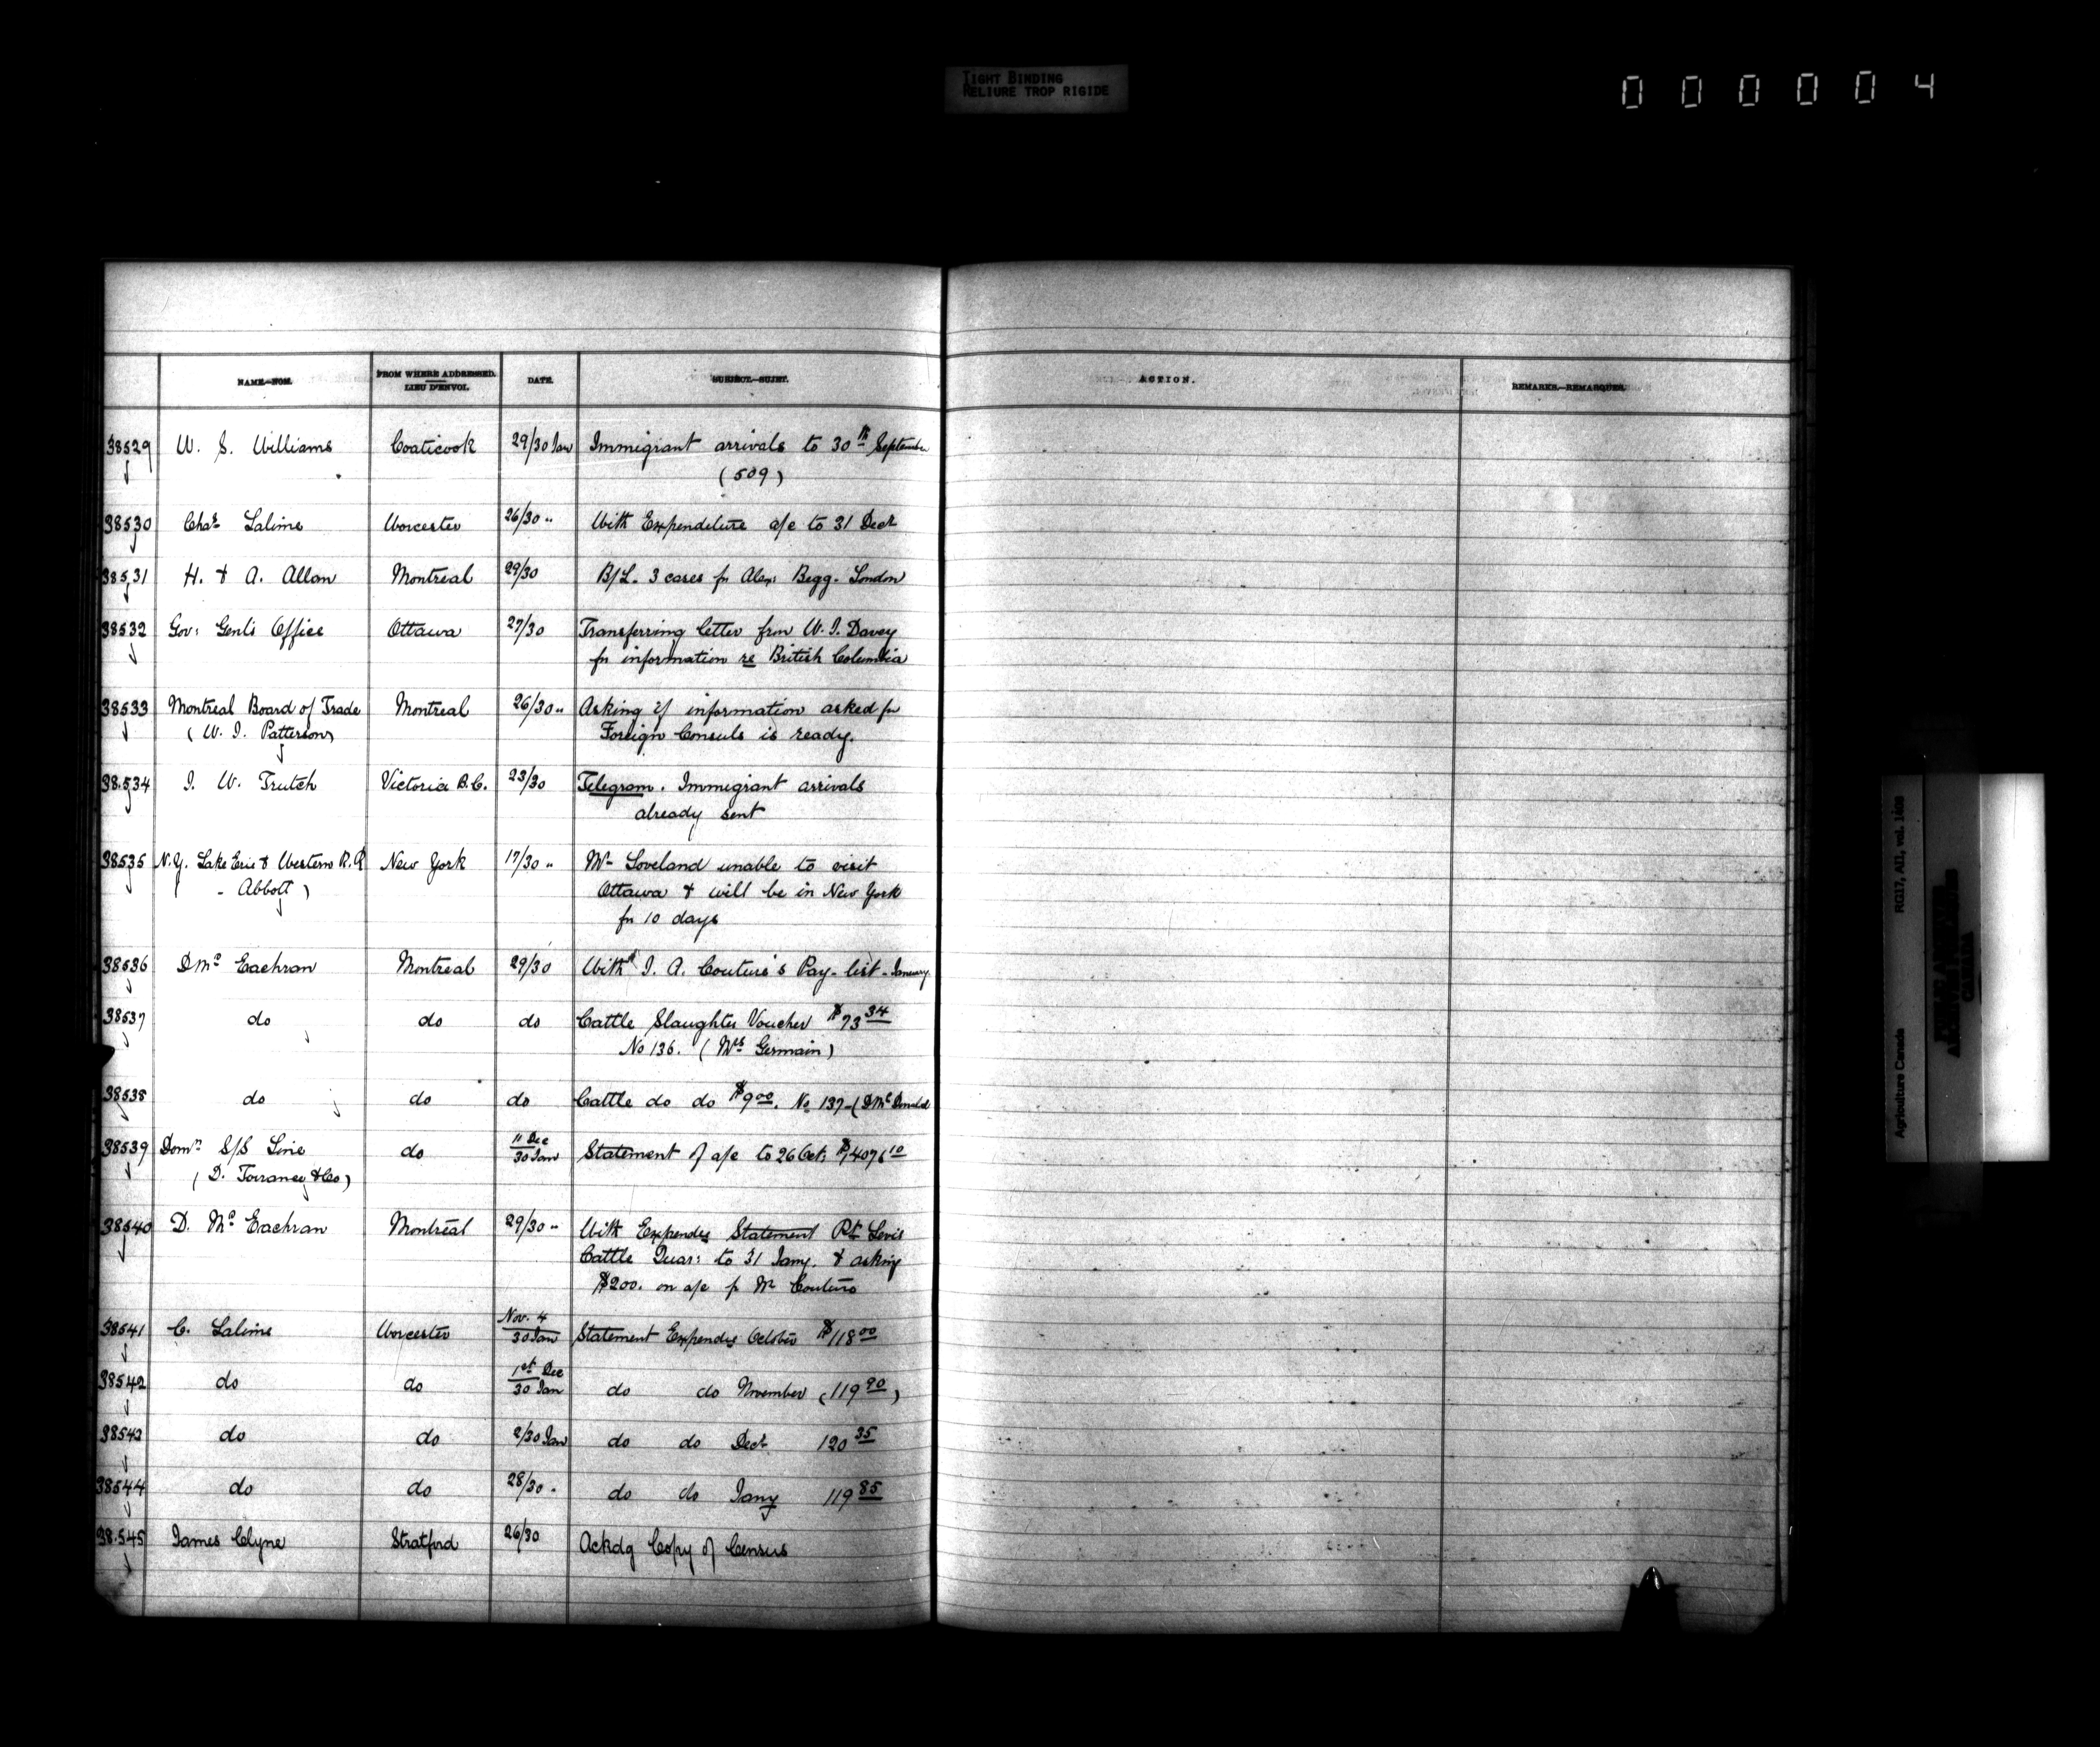 TIGHT BINDING
RELIURE TROP RIGIDE
000004
NAME.—NOM. FROM WHERE ADDRESSED. LIEU D'ENVOI. DATE. SUBJECT.—SUJET. ACTION. REMARKS.—REMARQUES.
38529 W. S. Williams Coaticook 29/30 Jan Immigrant arrivals to 30th September
(509)
38530 Chas Lalime Worcester 26/30 " With Expenditure a/c to 31 Decr
38531 H. & A. Allan Montreal 29/30 B/L. 3 cases fr Alex: Begg. London
38532 Gov: Genl's Office Ottawa 27/30 Transferring letter from W. J. Davey
fr information re British Columbia
38533 Montreal Board of Trade Montreal 26/30 " Asking if information asked fr
( W. J. Patterson) Foreign Consuls is ready.
38534 J. W. Trutch Victoria B.C. 23/30 Telegram. Immigrant arrivals
already sent
38535 N.Y. Lake Erie & Western R.R New York 17/30 " Mr Loveland unable to visit
- Abbott ) Ottawa & will be in New York
fr 10 days
38536 D McEachran Montreal 29/30 With J. A. Couture's Pay-list - January
38537 do do do Cattle Slaughter Voucher $73 34
No 136. (Mrs Germain)
38538 do do do Cattle do do $9 00. No 137-(D McDonald
38539 Domn S/S Line do 11 Dec / 30 Jan Statement of a/c to 26 Oct: $1407 6 10
( D. Torrance & Co)
38540 D. McEachran Montreal 29/30 " With Expendre Statement Pt Levis
Cattle Quar: to 31 Jany. & asking
$200. on a/c fr Mr Couture
38541 C. Lalime Worcester Nov. 4 / 30 Jan Statement Expendre October $118 00
38542 do do 1st Dec / 30 Jan do do November (119 90)
38543 do do 2/30 Jan do do Decr 120 35
38544 do do 28/30 " do do Jany 119 85
38545 James Clyne Stratford 26/30 Ackdg Copy of Census
Agriculture Canada RG17, AII, vol. 1498
PUBLIC ARCHIVES
ARCHIVES PUBLIQUES
CANADA